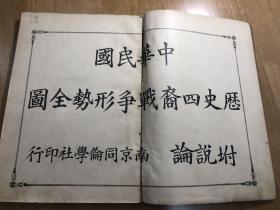 中華民國
歷史四裔戰爭形勢全圖
坿說論
南京同倫學社印行